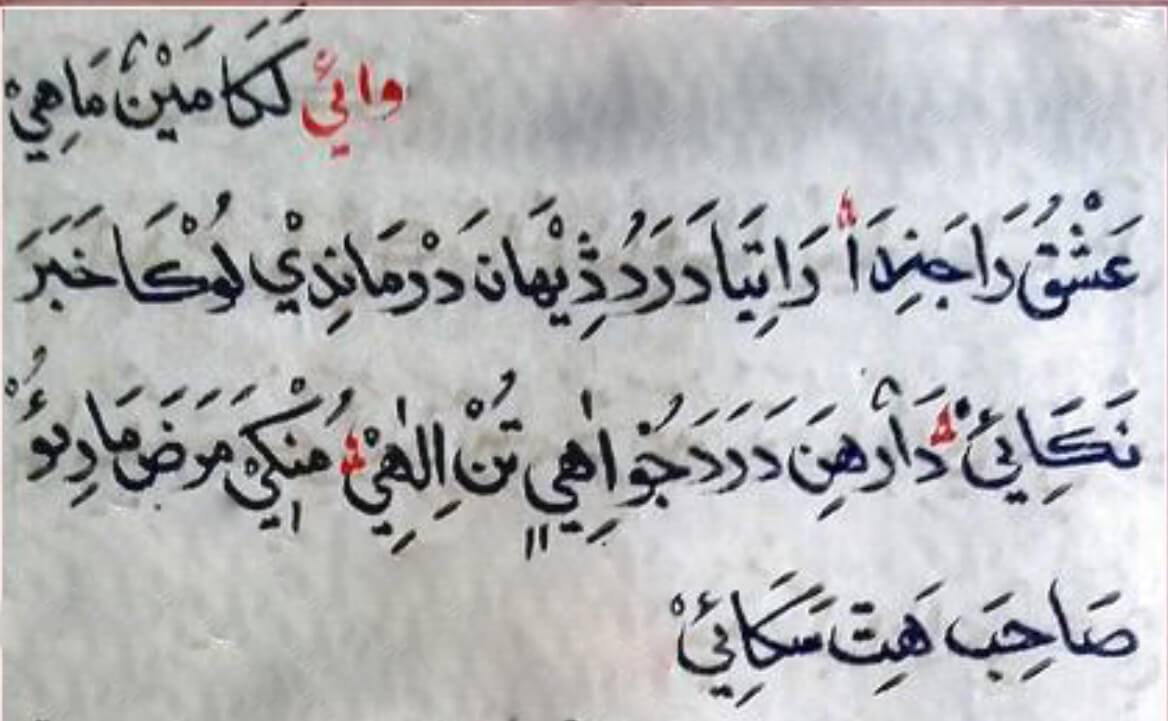 وائِيْ لَکَا مَيْنْ مَاهِيْ
عَشْقُ رَا جِنِدَ اُ رَاتِيَا دَرَدُ ڎِيْهَانَ دَرْمَانِدِيْ لُوْکَا خَبَرَ
نَکَائِيْ دَارْهِنَ دَرَدَ جُوْ اِهِيِ تُنْ اِلٰهِيْ مُنْکِيْ مَرَضَ مَارِئوُ
صَاحِبَ هَٿِ سَکَائِيْ